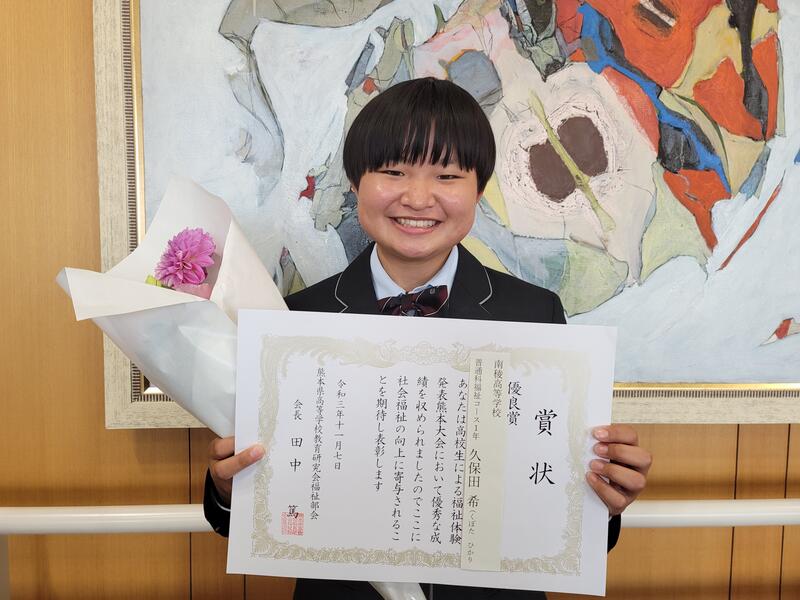 賞状
優良賞
南稜高等学校
普通科福祉コース1年 久保田 希(くぼた ひかり)
あなたは高校生による福祉体験
発表熊本大会において優秀な成
績を収められましたのでここに
社会福祉の向上に寄与されるこ
とを期待し表彰します
令和三年十一月七日
熊本県高等学校教育研究会福祉部会
会長 田中 篤